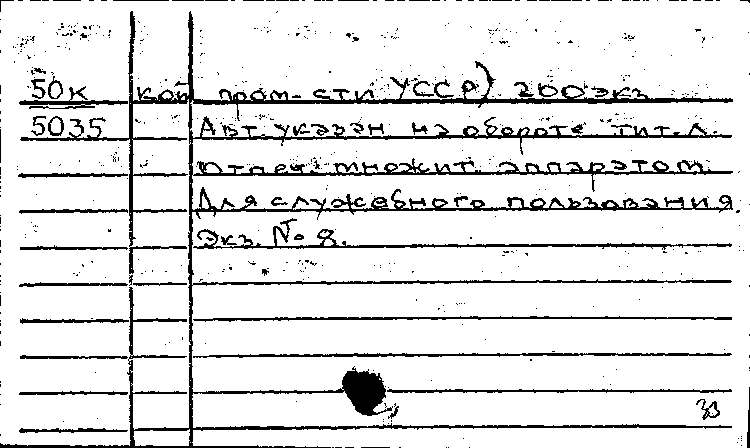 50к кой пром-сти УССР) 200экз
5035 Авт. указан на обороте тит.л.
Отпеч. множит. аппаратом.
Для служебного пользования.
Экз. № 8.